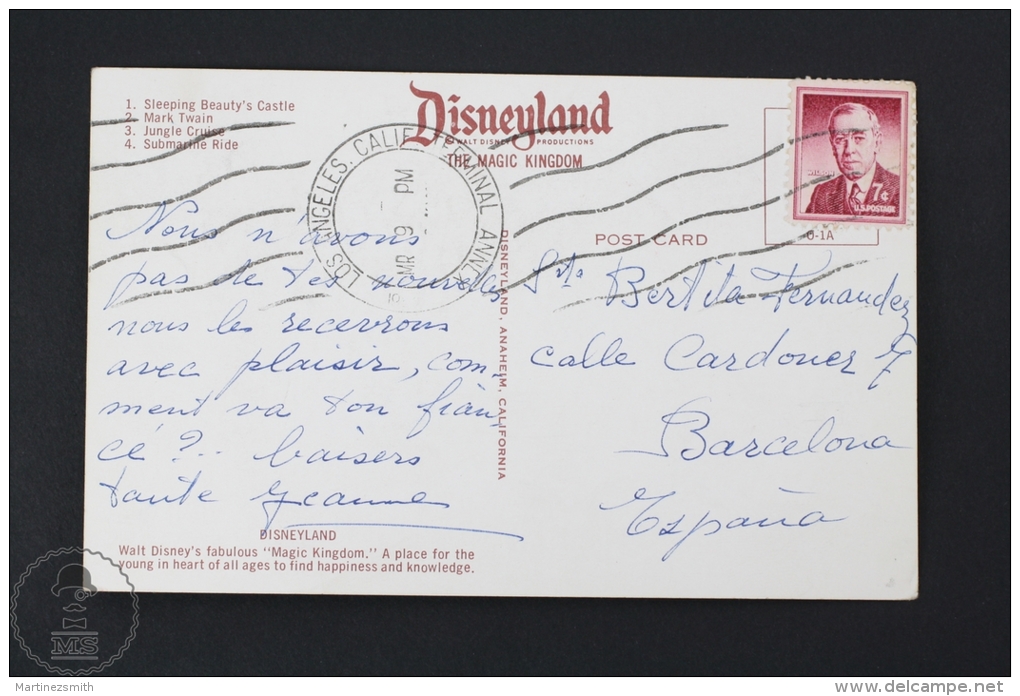 1. Sleeping Beauty's Castle
2. Mark Twain
3. Jungle Cruise
4. Submarine Ride
Disneyland
© WALT DISNEY PRODUCTIONS
THE MAGIC KINGDOM
LOS ANGELES, CALIF. TERMINAL ANNEX
PM
MR 9
WILSON
7¢
U.S. POSTAGE
0-1A
POST CARD
Nous n'avons
pas de tes nouvelles
nous les recevrons
avec plaisir, com-
ment va ton fian-
cé ?.. baisers
tante Jeanne
DISNEYLAND, ANAHEIM, CALIFORNIA
Srta Bertita Fernandez
calle Cardoner 7
Barcelona
España
DISNEYLAND
Walt Disney's fabulous "Magic Kingdom." A place for the
young in heart of all ages to find happiness and knowledge.
MS
Martinezsmith
www.delcampe.net